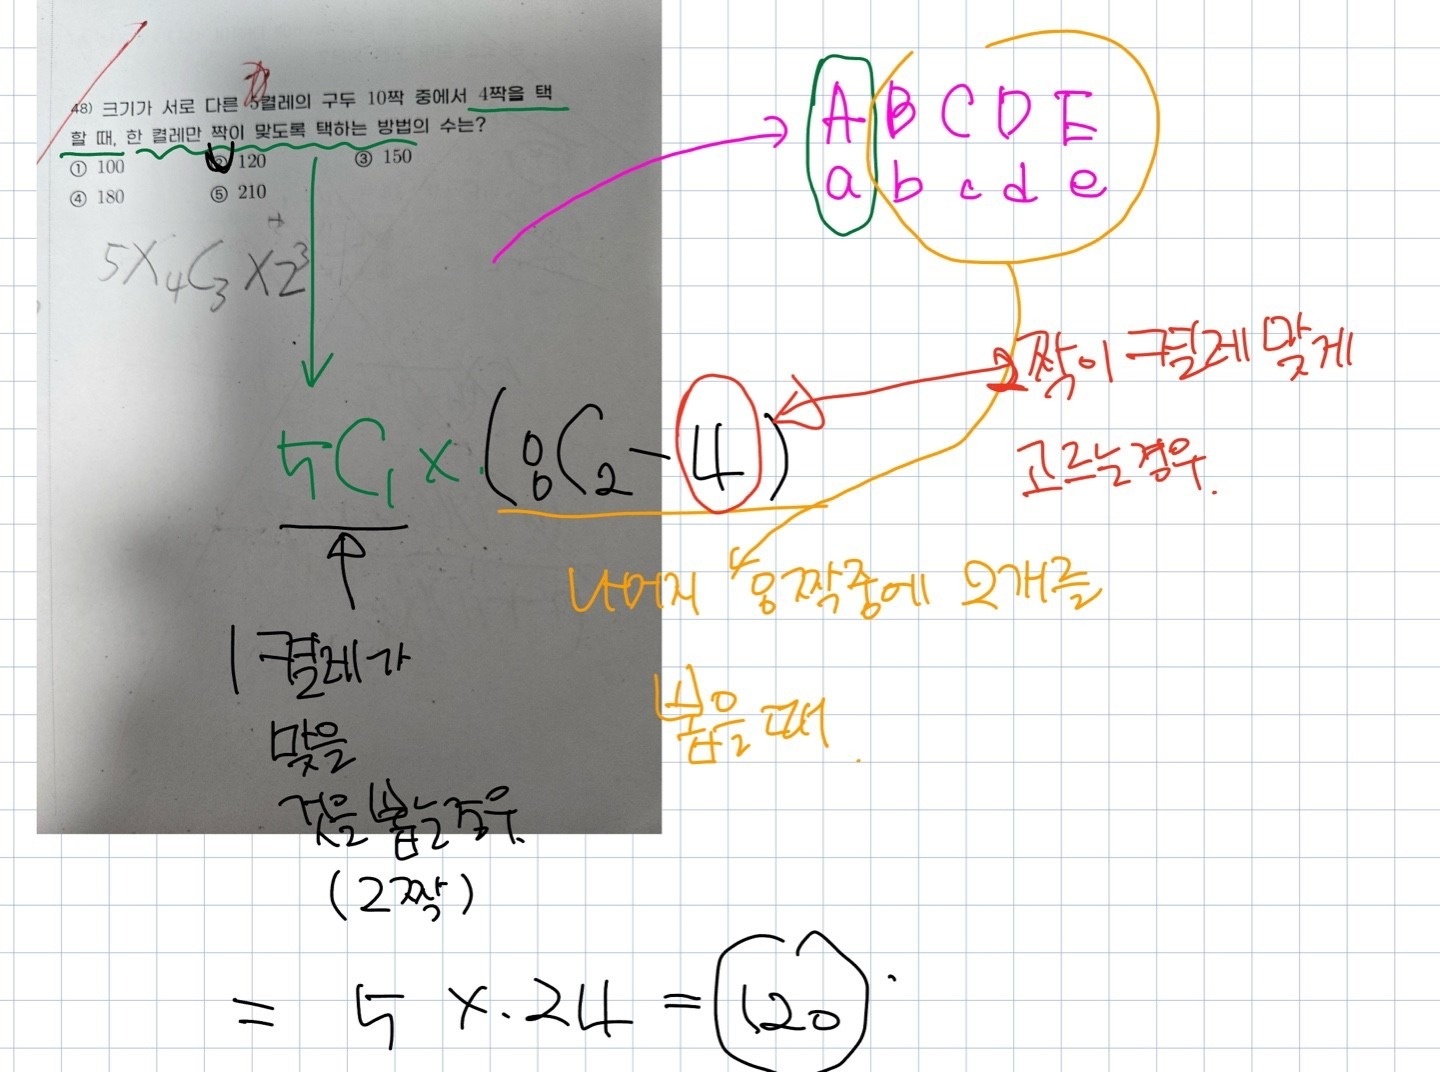 48) 크기가 서로 다른 5켤레의 구두 10짝 중에서 4짝을 택
할 때, 한 켤레만 짝이 맞도록 택하는 방법의 수는?
① 100 ② 120 ③ 150
④ 180 ⑤ 210
5×₄C₃×2³
A B C D E
a b c d e
짝이 켤레 맞게
고르는 경우.
₅C₁ × (₈C₂ - 4)
나머지 8짝중에 2개를
뽑을 때.
1켤레가
맞을
것을 뽑는 경우.
(2짝)
= 5 × 24 = 120